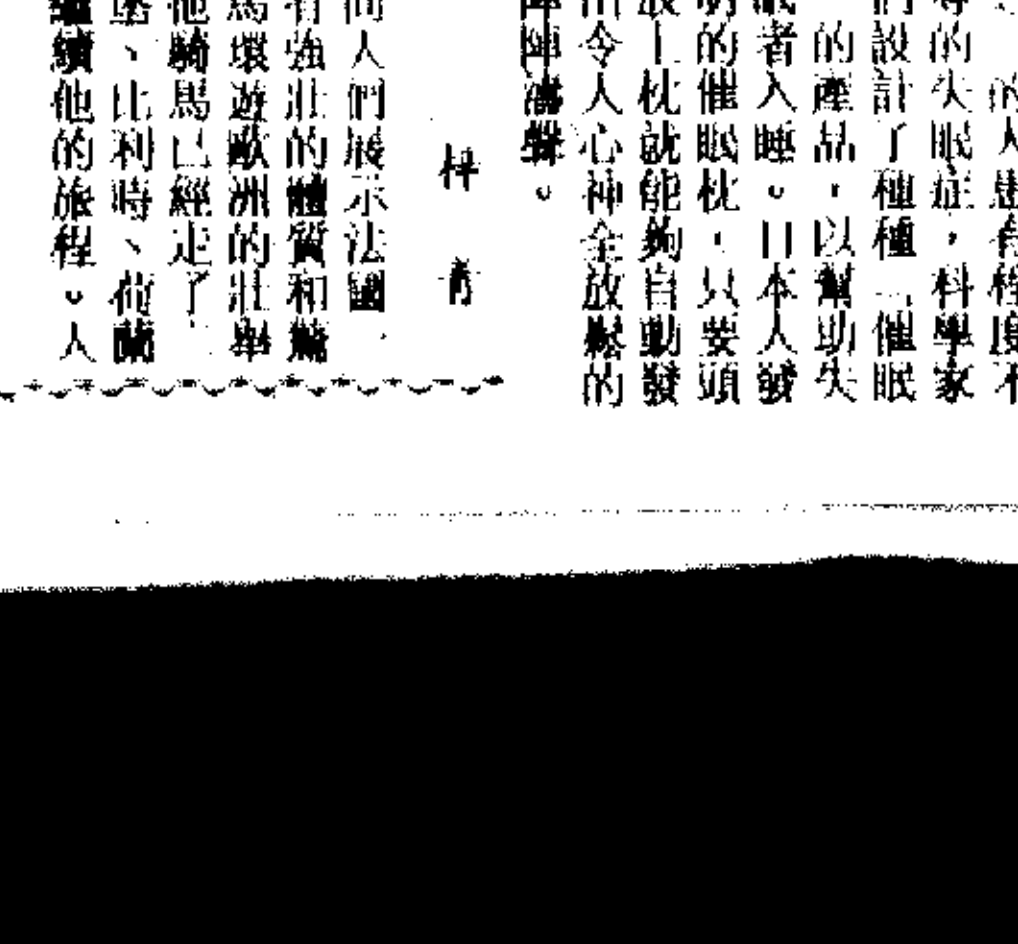 的人患有程度不
的失眠症，科學家
設計了種種「催眠
的產品，以幫助失
者入睡。日本人發
的催眠枕，只要頭
上枕就能夠自動發
令人心神全放鬆的
陣濤聲。
青
人們展示法國
強壯的體質和
馬環遊歐洲的壯舉
他騎馬已經走了
、比利時、荷蘭
繼續他的旅程。人